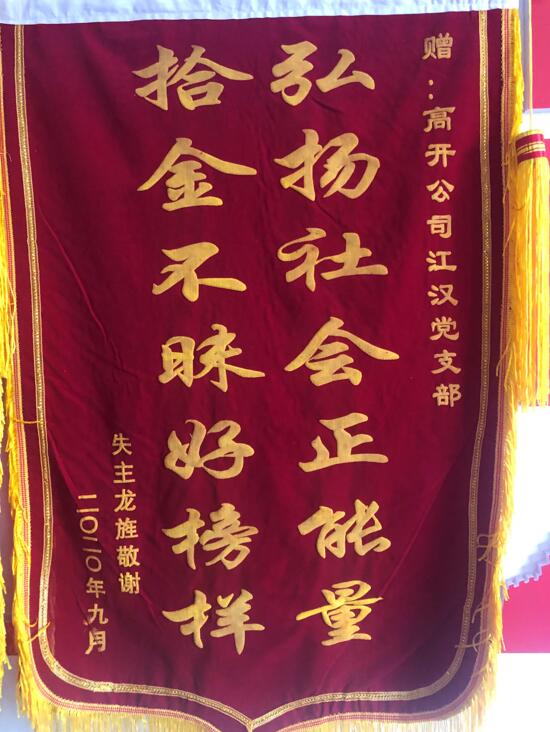 赠：高开公司江汉党支部
弘扬社会正能量
拾金不昧好榜样
失主龙旌敬谢
二〇二〇年九月